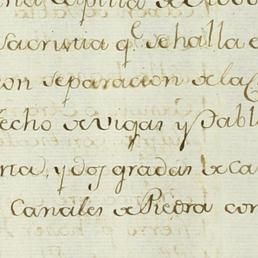 sacristia q.e se halla e
con separacion de la C
techo de vigas y tabl
rta, y dos gradas de ca
Canales de Piedra con